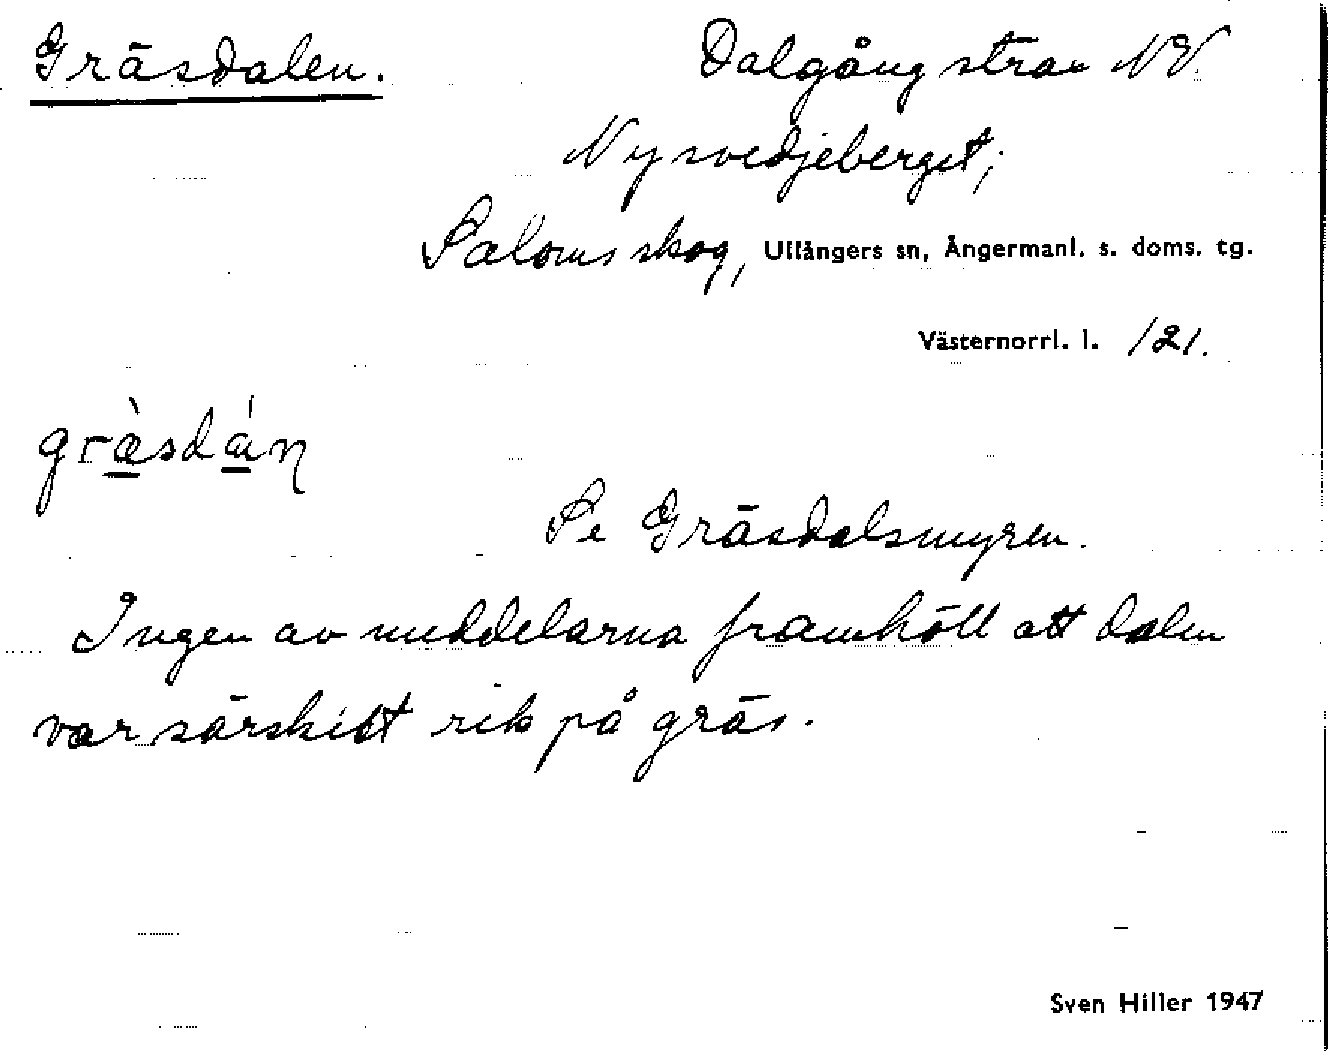 Gräsdalen. Dalgång strax NV
Nysvedjeberget;
Saloms skog, Ullångers sn, Ångermanl. s. doms. tg.
Västernorrl. l. 121.
græ̀sdán
Se Gräsdalsmyren.
Ingen av meddelarna framhöll att dalen
var särskilt rik på gräs.
Sven Hiller 1947